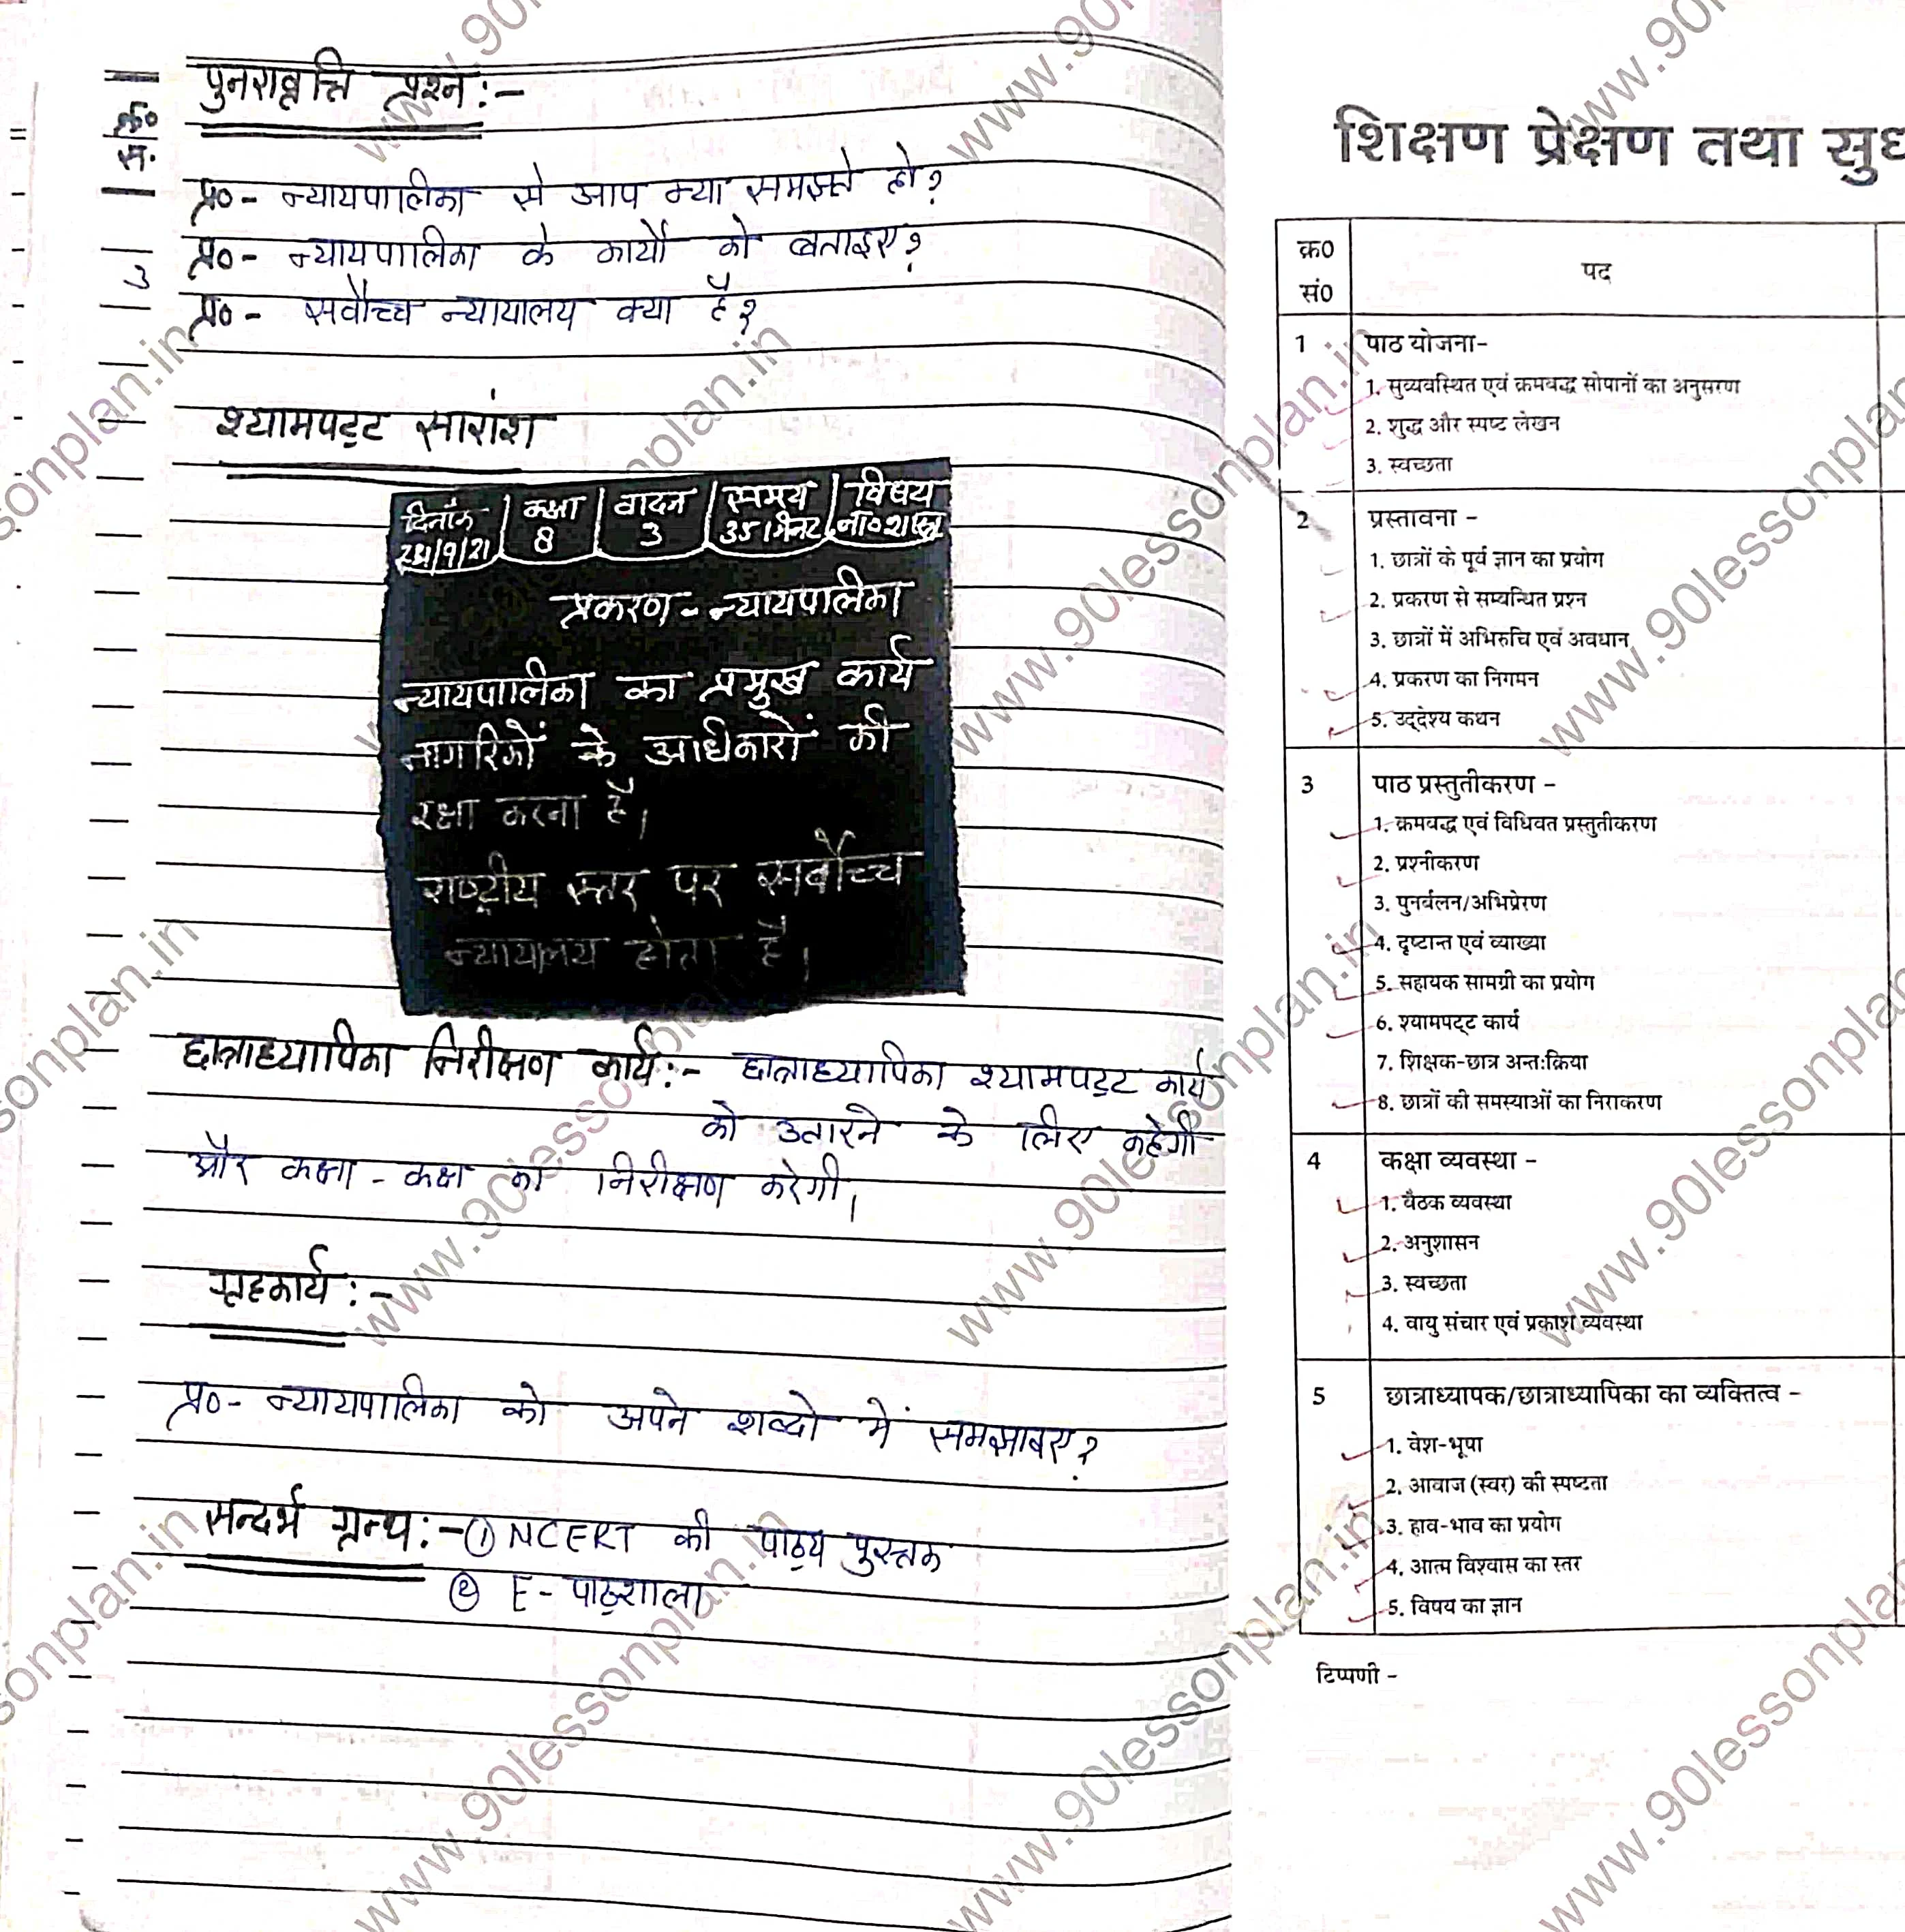 पुनरावृत्ति प्रश्न :-
क्र०
स.
प्र०- न्यायपालिका से आप क्या समझते हो?
प्र०- न्यायपालिका के कार्यों को बताइए?
3
प्र०- सर्वोच्च न्यायालय क्या है?
श्यामपट्ट सारांश
दिनांक कक्षा वादन समय विषय
8 3 35 मिनट ना०शास्त्र
प्रकरण - न्यायपालिका
न्यायपालिका का प्रमुख कार्य
नागरिकों के अधिकारों की
रक्षा करना है।
राष्ट्रीय स्तर पर सर्वोच्च
न्यायालय होता है।
छात्राध्यापिका निरीक्षण कार्य :- छात्राध्यापिका श्यामपट्ट कार्य
को उतारने के लिए कहेगी
और कक्षा - कक्ष का निरीक्षण करेगी।
गृहकार्य :-
प्र०- न्यायपालिका को अपने शब्दो में समझाइए?
सन्दर्भ ग्रन्थ :- ① NCERT की पाठ्य पुस्तक
② E - पाठशाला
शिक्षण प्रेक्षण तथा सुध
क्र० सं० पद
1 पाठ योजना-
1. सुव्यवस्थित एवं क्रमबद्ध सोपानों का अनुसरण
2. शुद्ध और स्पष्ट लेखन
3. स्वच्छता
2 प्रस्तावना -
1. छात्रों के पूर्व ज्ञान का प्रयोग
2. प्रकरण से सम्बन्धित प्रश्न
3. छात्रों में अभिरुचि एवं अवधान
4. प्रकरण का निगमन
5. उद्देश्य कथन
3 पाठ प्रस्तुतीकरण -
1. क्रमबद्ध एवं विधिवत प्रस्तुतीकरण
2. प्रश्नीकरण
3. पुनर्बलन/अभिप्रेरण
4. दृष्टान्त एवं व्याख्या
5. सहायक सामग्री का प्रयोग
6. श्यामपट्ट कार्य
7. शिक्षक-छात्र अन्त:क्रिया
8. छात्रों की समस्याओं का निराकरण
4 कक्षा व्यवस्था -
1. बैठक व्यवस्था
2. अनुशासन
3. स्वच्छता
4. वायु संचार एवं प्रकाश व्यवस्था
5 छात्राध्यापक/छात्राध्यापिका का व्यक्तित्व -
1. वेश-भूषा
2. आवाज (स्वर) की स्पष्टता
3. हाव-भाव का प्रयोग
4. आत्म विश्वास का स्तर
5. विषय का ज्ञान
टिप्पणी -
www.90lessonplan.in